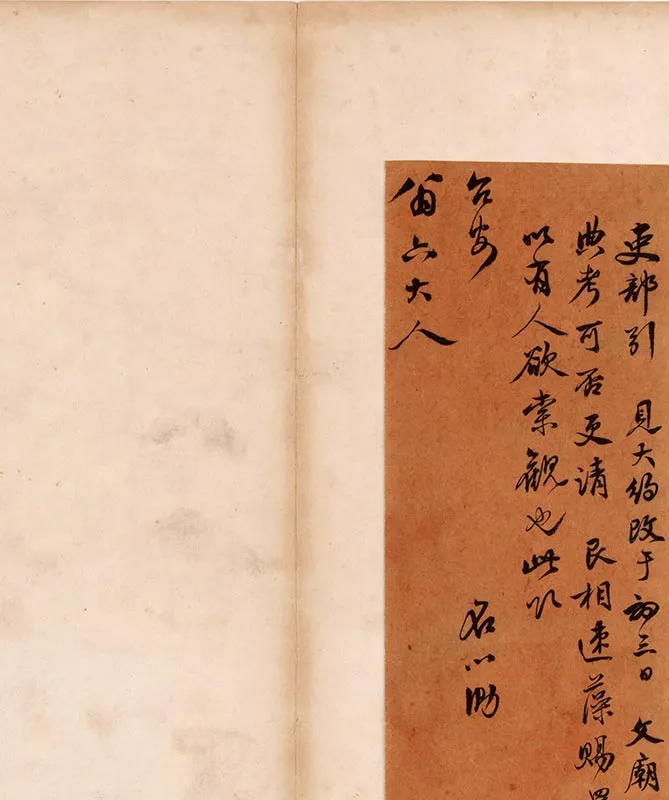 吏部引 見大約改于初三日 文廟
典考可否更請 艮相速藻賜
以有人欲索觀也此叩
台安 名心泐
六大人